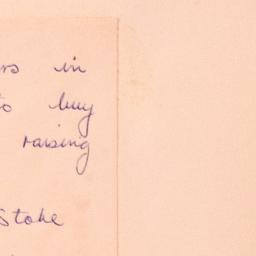 in
to buy
raising
Stoke